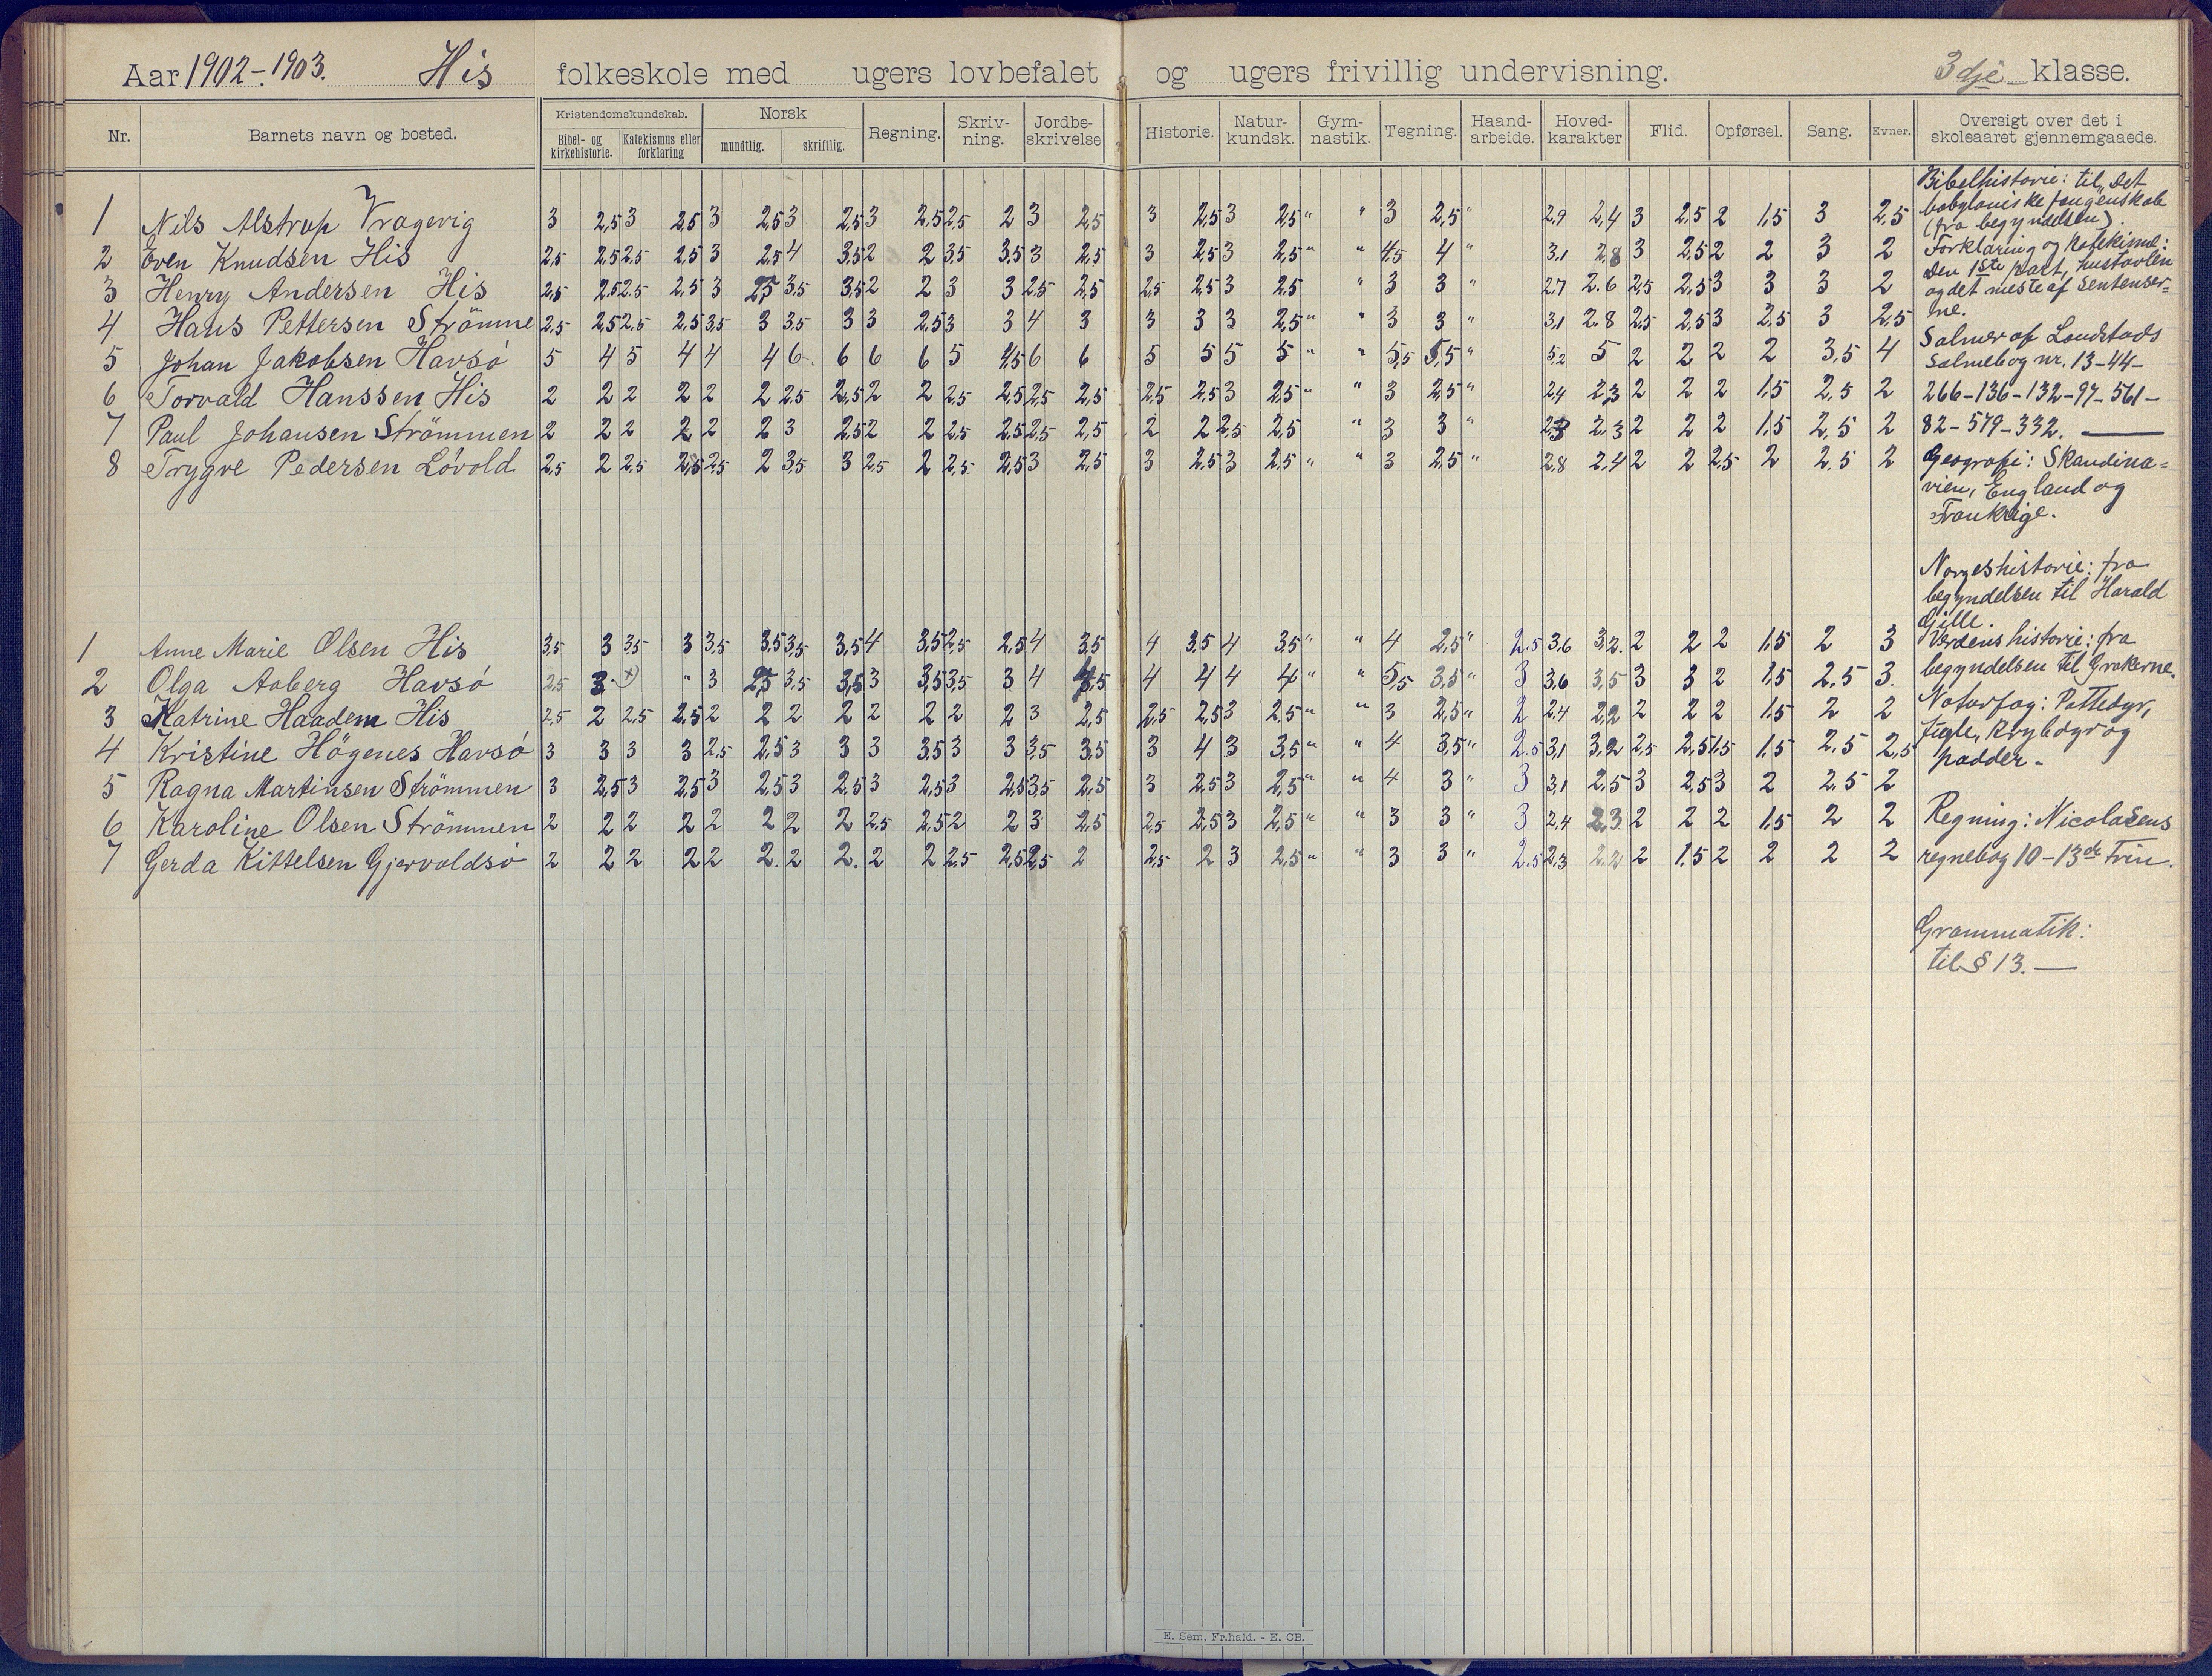 Aar 1902-1903. His folkeskole med ugers lovbefalet og ugers frivillig undervisning. 3dje klasse.
Nr. Barnets navn og bosted. Kristendomskundskab. Bibel- og kirkehistorie. Katekismus eller forklaring Norsk mundtlig. skriftlig. Regning. Skriv-ning. Jordbe-skrivelse Historie. Natur-kundsk. Gym-nastik. Tegning. Haand-arbeide. Hoved-karakter Flid. Opførsel. Sang. Evner. Oversigt over det i skoleaaret gjennemgaaede.
1 Nils Alstrup Vragevig 3 2,5 3 2,5 3 2,5 3 2,5 3 2,5 2,5 2 3 2,5 3 2,5 3 2,5 " " 3 2,5 " 2,9 2,4 3 2,5 2 1,5 3 2,5
2 Even Knudsen His 2,5 2,5 2,5 2,5 3 2,5 4 3,5 2 2 3,5 3,5 3 2,5 3 2,5 3 2,5 " " 4,5 4 " 3,1 2,8 3 2,5 2 2 3 2
3 Henry Andersen His 2,5 2,5 2,5 2,5 3 2,5 3,5 3,5 2 2 3 3 2,5 2,5 2,5 2,5 3 2,5 " 3 3 " 2,7 2.6 2,5 2,5 3 3 3 2
4 Hans Pettersen Strömme 2,5 2,5 2,5 2,5 3,5 3 3,5 3 3 2,5 3 3 4 3 3 3 3 2,5 " " 3 3 " 3,1 2.8 2,5 2,5 3 2,5 3 2,5
5 Johan Jakobsen Havsö 5 4 5 4 4 4 6 6 6 6 5 4,5 6 6 5 5 5 5 " " 5,5 5,5 " 5,2 5 2 2 2 2 3,5 4
6 Torvald Hanssen His 2 2 2 2 2 2 2,5 2,5 2 2 2,5 2,5 2,5 2,5 2,5 2,5 3 2,5 " " 3 2,5 " 2,4 2,3 2 2 2 1,5 2,5 2
7 Paul Johansen Strömmen 2 2 2 2 2 2 3 2,5 2 2 2,5 2,5 2,5 2,5 2 2 2,5 2,5 " 3 3 " 2,3 2,3 2 2 2 1,5 2,5 2
8 Trygve Pedersen Lövold 2,5 2 2,5 2,5 2,5 2 3,5 3 2,5 2 2,5 2,5 3 2,5 3 2,5 3 2,5 " " 3 2,5 " 2,8 2,4 2 2 2,5 2 2,5 2
1 Anne Marie Olsen His 3,5 3 3,5 3 3,5 3,5 3,5 3,5 4 3,5 2,5 2,5 4 3,5 4 3,5 4 3,5 " " 4 2,5 " 2.5 3,6 3,2. 2 2 2 1,5 2 3
2 Olga Aaberg Havsö 2,5 3 " 3 2,5 3,5 3,5 3 3,5 3,5 3 4 3,5 4 4 4 4 " " 5,5 3,5 " 3 3,6 3,5 3 3 2 1,5 2,5 3.
3 Katrine Haadem His 2,5 2 2,5 2,5 2 2 2 2 2 2 2 2 3 2,5 2,5 2,5 3 2,5 " " 3 2,5 " 2 2,4 2,2 2 2 2 1,5 2 2
4 Kristine Högenes Havsö 3 3 3 3 2,5 2,5 3 3 3 3,5 3 3 3,5 3,5 3 4 3 3,5 " " 4 3,5 " 2.5 3,1 3,2 2,5 2,5 1,5 1,5 2,5 2,5
5 Ragna Martinsen Strömmen 3 2,5 3 2,5 3 2,5 3 2,5 3 2,5 3 2,5 3,5 2,5 3 2,5 3 2,5 " " 4 3 " 3 3,1 2,5 3 2,5 3 2 2,5 2
6 Karoline Olsen Strömmen 2 2 2 2 2 2 2 2 2,5 2,5 2 2 3 2,5 2,5 2,5 3 2,5 " " 3 3 " 3 2,4 2,3 2 2 2 1,5 2 2
7 Gerda Kittelsen Gjervoldsö 2 2 2 2 2 2. 2 2. 2 2 2,5 2,5 2,5 2 2,5 2 3 2,5 " " 3 3 " 2.5 2,3 2,2 2 1,5 2 2 2 2
Bibelhistorie: til "det
babyloniske fangenskab
(fra begyndelsen).
Forklaring og Katekisme:
Den 1ste part, hustavlen
og det meste af sentenser=
ne.
Salmer af Landstads
Salmebog nr. 13-44-
266-136-132-97-561-
82-579-332.
Geografi: Skandina=
vien, England og
Frankrige.
Norgeshistorie: fra
begyndelsen til Harald
Gille.
Verdenshistorie: fra
begyndelsen til Grækerne.
Naturfag: Pattedyr,
fugle, krybdyr og
padder-
Regning: Nicolaisens
regnebog 10-13de Trin.
Grammatik:
til § 13.
E. Sem, Fr.hald. - E. CB.